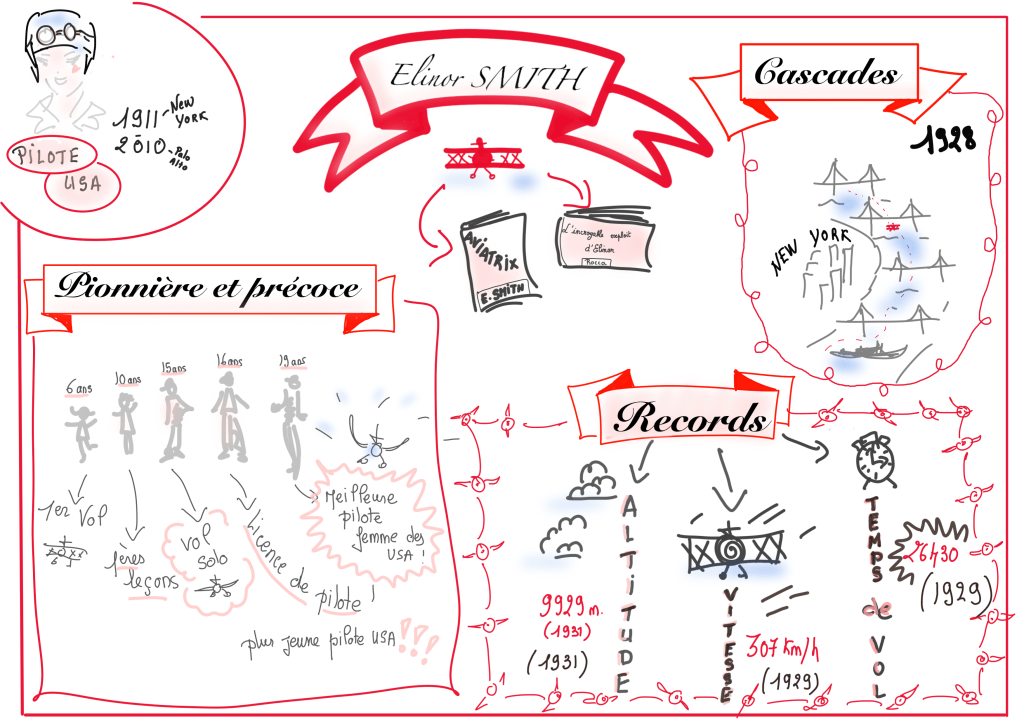 Elinor SMITH
1911 - New YORK
2010 - Palo Alto
PILOTE
USA
AVIATRIX
E. SMITH
L'incroyable exploit
d'Elinor
Rocca
Cascades
1928
NEW YORK
Pionnière et précoce
6 ans
10 ans
15 ans
16 ans
19 ans
1er Vol
1ères
leçons
vol
solo
licence de pilote !
plus jeune pilote USA !!!
Meilleure
pilote
femme des
USA !
Records
ALTITUDE
9929 m.
(1931)
(1931)
VITESSE
307 km/h
(1929)
TEMPS de VOL
26H30
(1929)